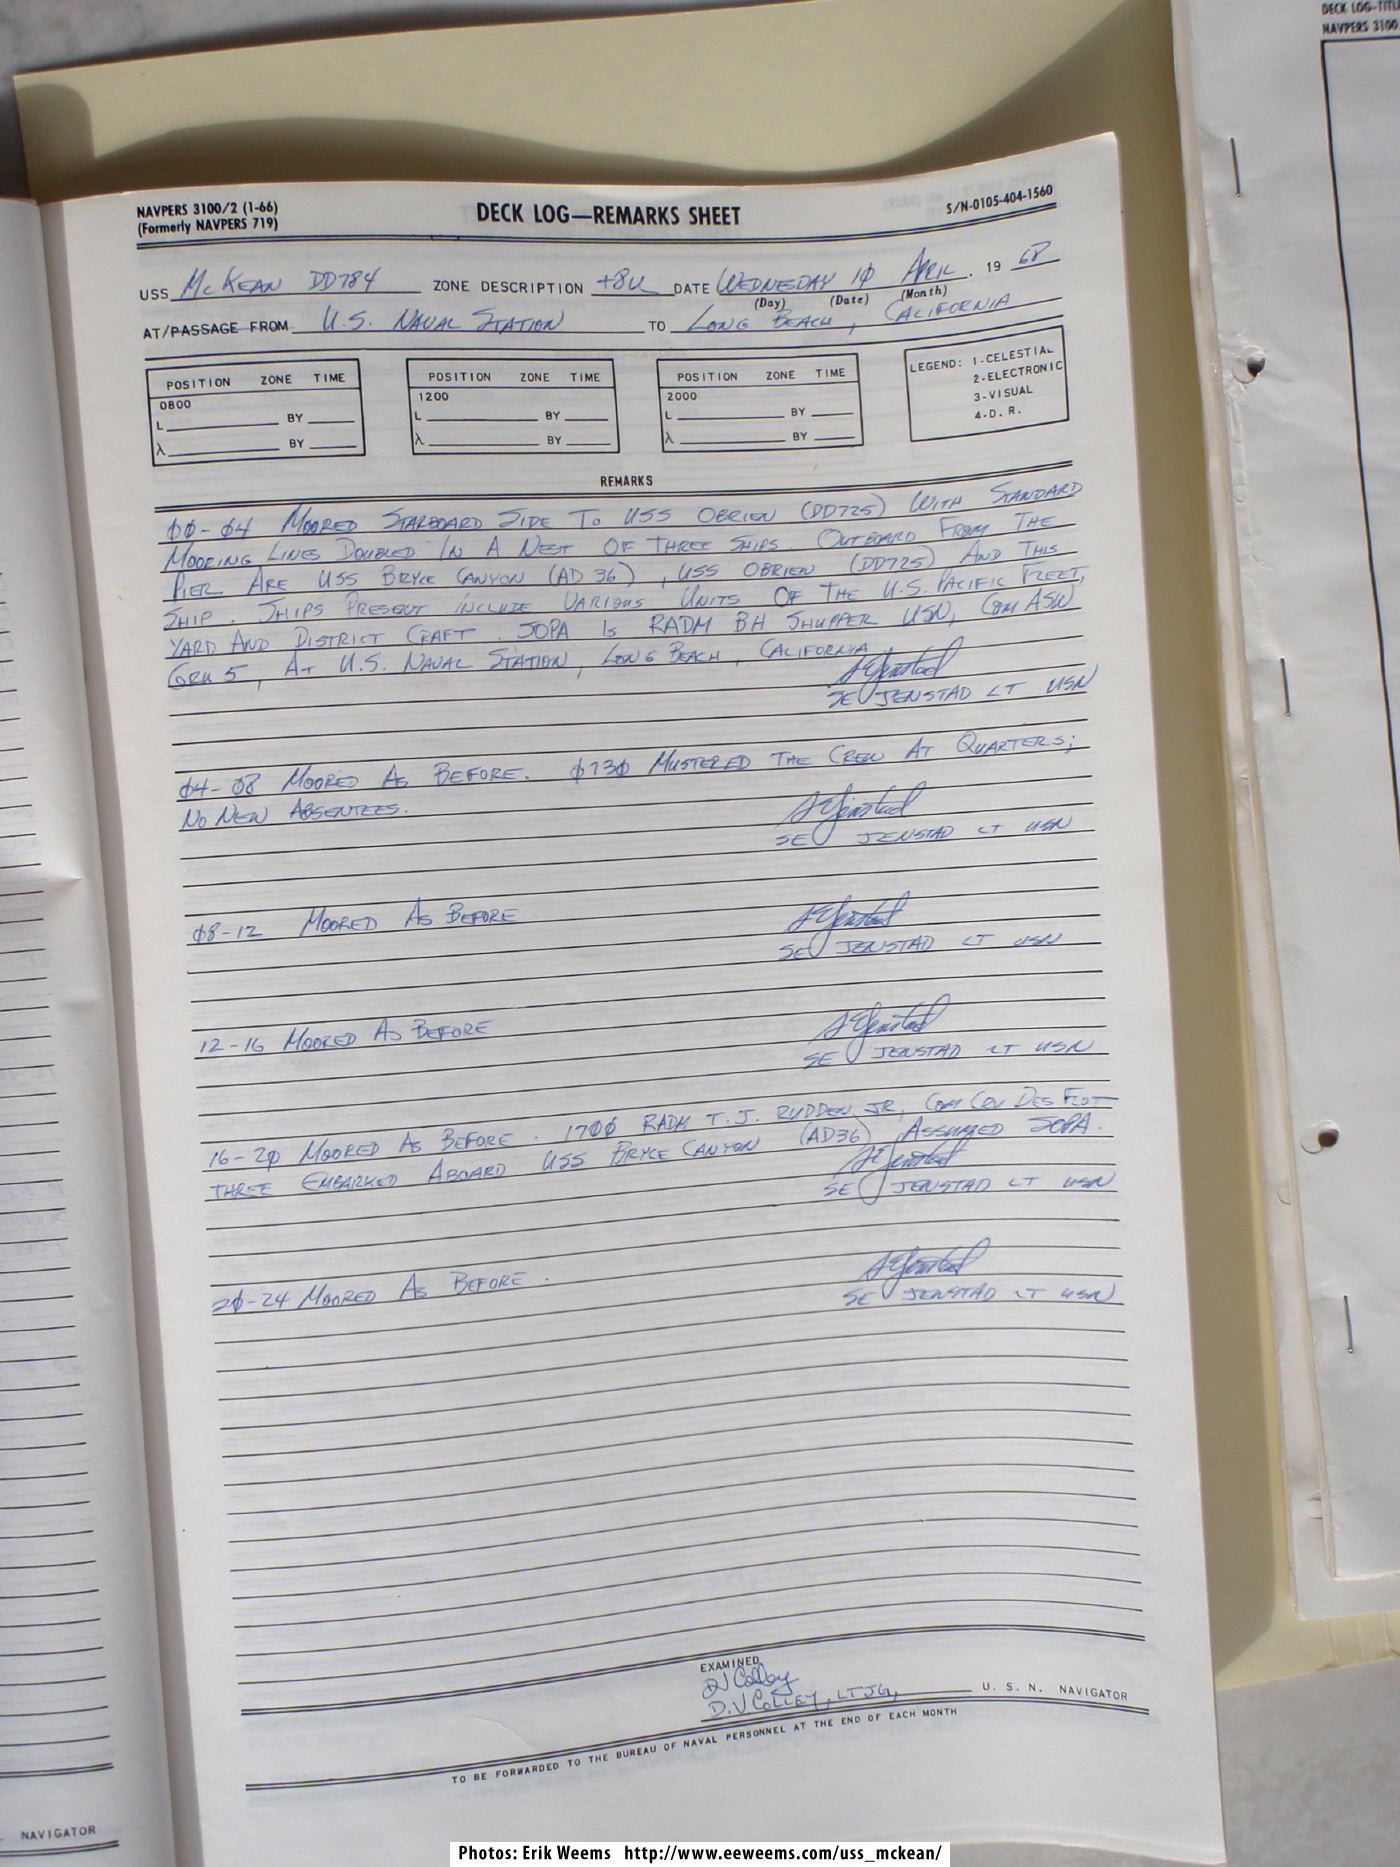 DECK LOG-TITL
NAVPERS 3100
NAVPERS 3100/2 (1-66)
(Formerly NAVPERS 719)
DECK LOG—REMARKS SHEET
S/N-0105-404-1560
USS McKEAN DD784 ZONE DESCRIPTION +8U DATE WEDNESDAY 10 APRIL . 19 68
(Day) (Date) (Month)
AT/PASSAGE FROM U.S. NAVAL STATION TO LONG BEACH, CALIFORNIA
POSITION ZONE TIME
0800
L BY
λ BY
POSITION ZONE TIME
1200
L BY
λ BY
POSITION ZONE TIME
2000
L BY
λ BY
LEGEND: 1-CELESTIAL
2-ELECTRONIC
3-VISUAL
4-D. R.
REMARKS
00-04 MOORED STARBOARD SIDE TO USS OBRIEN (DD725) WITH STANDARD
MOORING LINES DOUBLED IN A NEST OF THREE SHIPS OUTBOARD FROM THE
PIER ARE USS BRYCE CANYON (AD 36), USS OBRIEN (DD725) AND THIS
SHIP. SHIPS PRESENT INCLUDE VARIOUS UNITS OF THE U.S. PACIFIC FLEET,
YARD AND DISTRICT CRAFT. SOPA IS RADM BH SHUPPER USN, COM ASW
GRU 5, AT U.S. NAVAL STATION, LONG BEACH, CALIFORNIA
SE Jenstad
SE JENSTAD LT USN
04-08 MOORED AS BEFORE. 0730 MUSTERED THE CREW AT QUARTERS;
NO NEW ABSENTEES.
SE Jenstad
SE JENSTAD LT USN
08-12 MOORED AS BEFORE
SE Jenstad
SE JENSTAD LT USN
12-16 MOORED AS BEFORE
SE Jenstad
SE JENSTAD LT USN
16-20 MOORED AS BEFORE. 1700 RADM T.J. RUDDEN JR, COM CRU DES FLOT
THREE EMBARKED ABOARD USS BRYCE CANYON (AD36) ASSUMED SOPA.
SE Jenstad
SE JENSTAD LT USN
20-24 MOORED AS BEFORE.
SE Jenstad
SE JENSTAD LT USN
EXAMINED
DV Colley
D.V COLLEY, LTJG, U. S. N. NAVIGATOR
TO BE FORWARDED TO THE BUREAU OF NAVAL PERSONNEL AT THE END OF EACH MONTH
. NAVIGATOR
Photos: Erik Weems http://www.eeweems.com/uss_mckean/